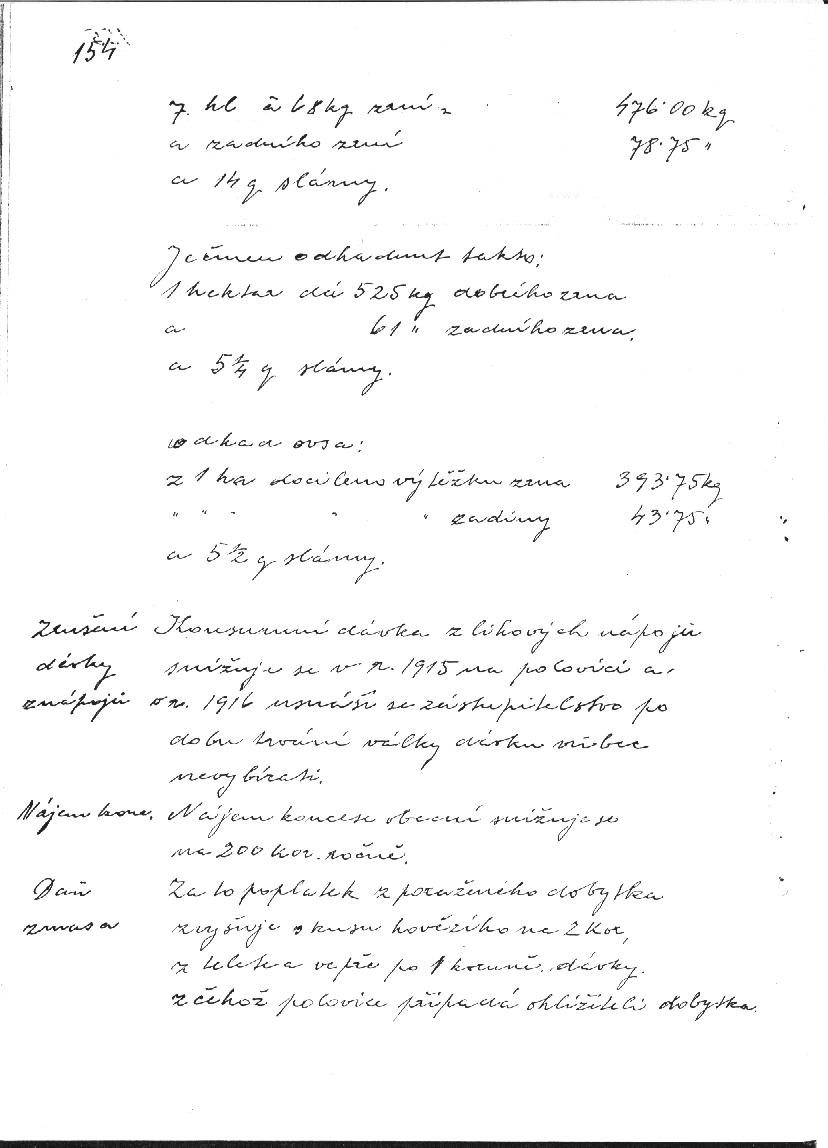 154
7. hl à 68 kg zrní - 476·00 kg
a zadního zrní 78·75 "
a 14 q slámy.
Ječmen odhadnut takto:
1 hektar dá 525 kg dobrého zrna
a 61 " zadního zrna.
a 5 1/4 q slámy.
odhad ovsa:
z 1 ha docíleno výtěžku zrna 393·75 kg
" " " " " zadiny 43·75 "
a 5 1/2 q slámy.
Zrušení Konsumní dávka z lihových nápojů
dávky snižuje se v r. 1915 na polovici a
z nápojů v r. 1916 usnáší se zastupitelstvo po
dobu trvání války dávku vůbec
nevybírati.
Nájem konc. Nájem koncese obecní snižuje se
na 200 Kor. ročně.
Daň Za to poplatek z poraženého dobytka
z masa zvyšuje s kusu hovězího na 2 Kor,
z telete a vepře po 1 koruně. dávky.
z čehož polovice připadá ohlížiteli dobytka.